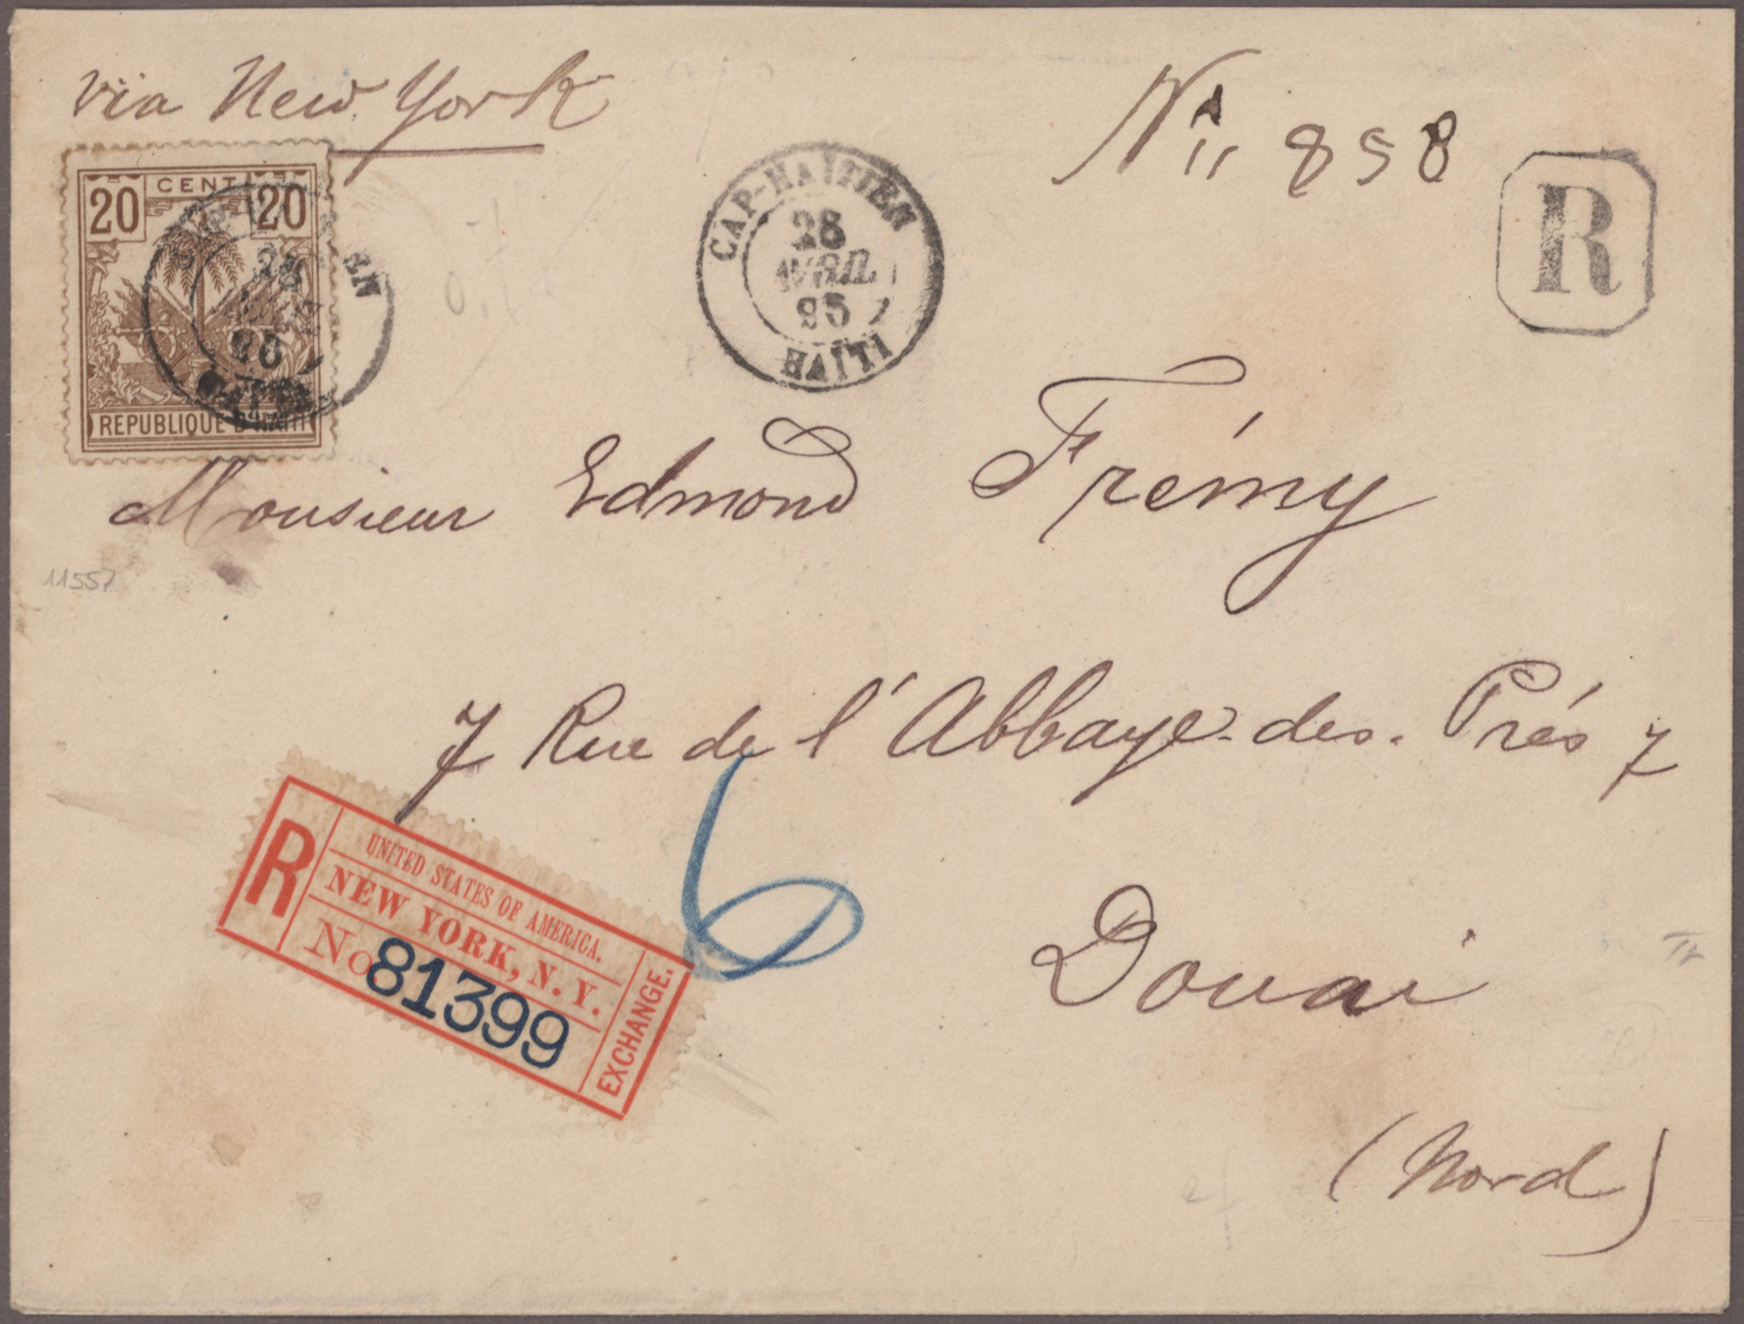 via New York
No 858
R
20 CENT 20
REPUBLIQUE D'HAITI
CAP-HAÏTIEN
28
AVRIL
95
HAÏTI
CAP-HAÏTIEN
28
AVRIL
95
HAÏTI
Monsieur Edmond Frémy
11557
7 Rue de l'Abbaye-des-Prés 7
6
Douai
(Nord)
R
UNITED STATES OF AMERICA.
NEW YORK, N. Y.
No 81399
EXCHANGE.